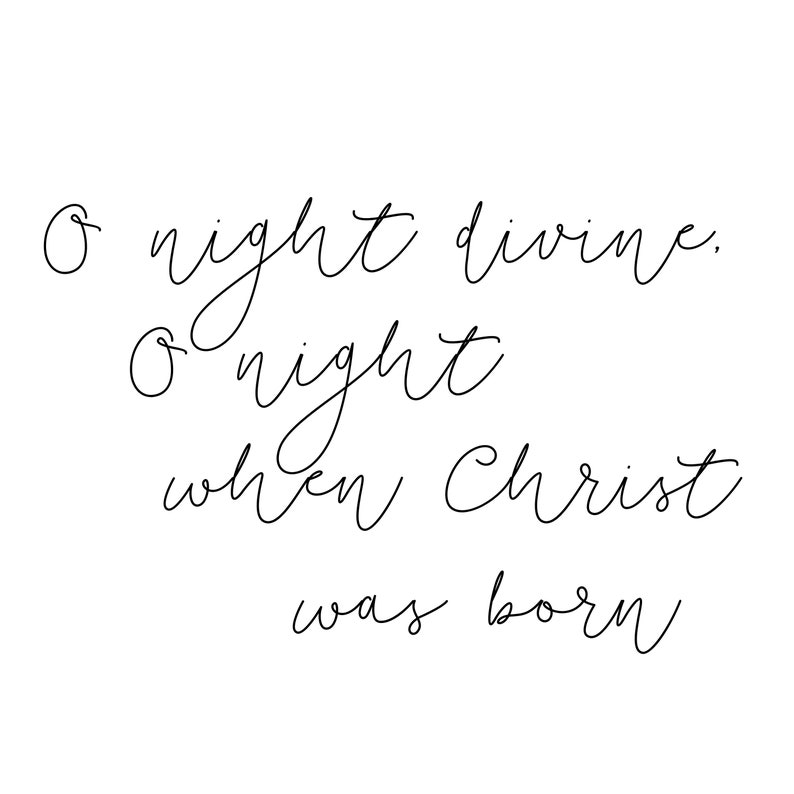 O night divine,
O night
when Christ
was born